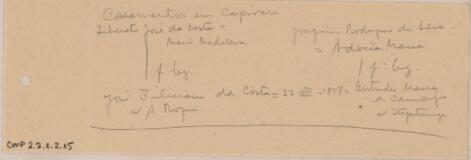 Casamentos em Capivari
Liberato José da Costa =
Maria Madalena
f. leg.
Joaquim Rodrigues da Silva
= Adocia Maria
f. leg.
José Feliciano da Costa = 22-VIII-1848 = Gertrudes Maria
de Camargo
n/ S. Roque
n/ Itapetininga
CMP 2.2.1.2.15